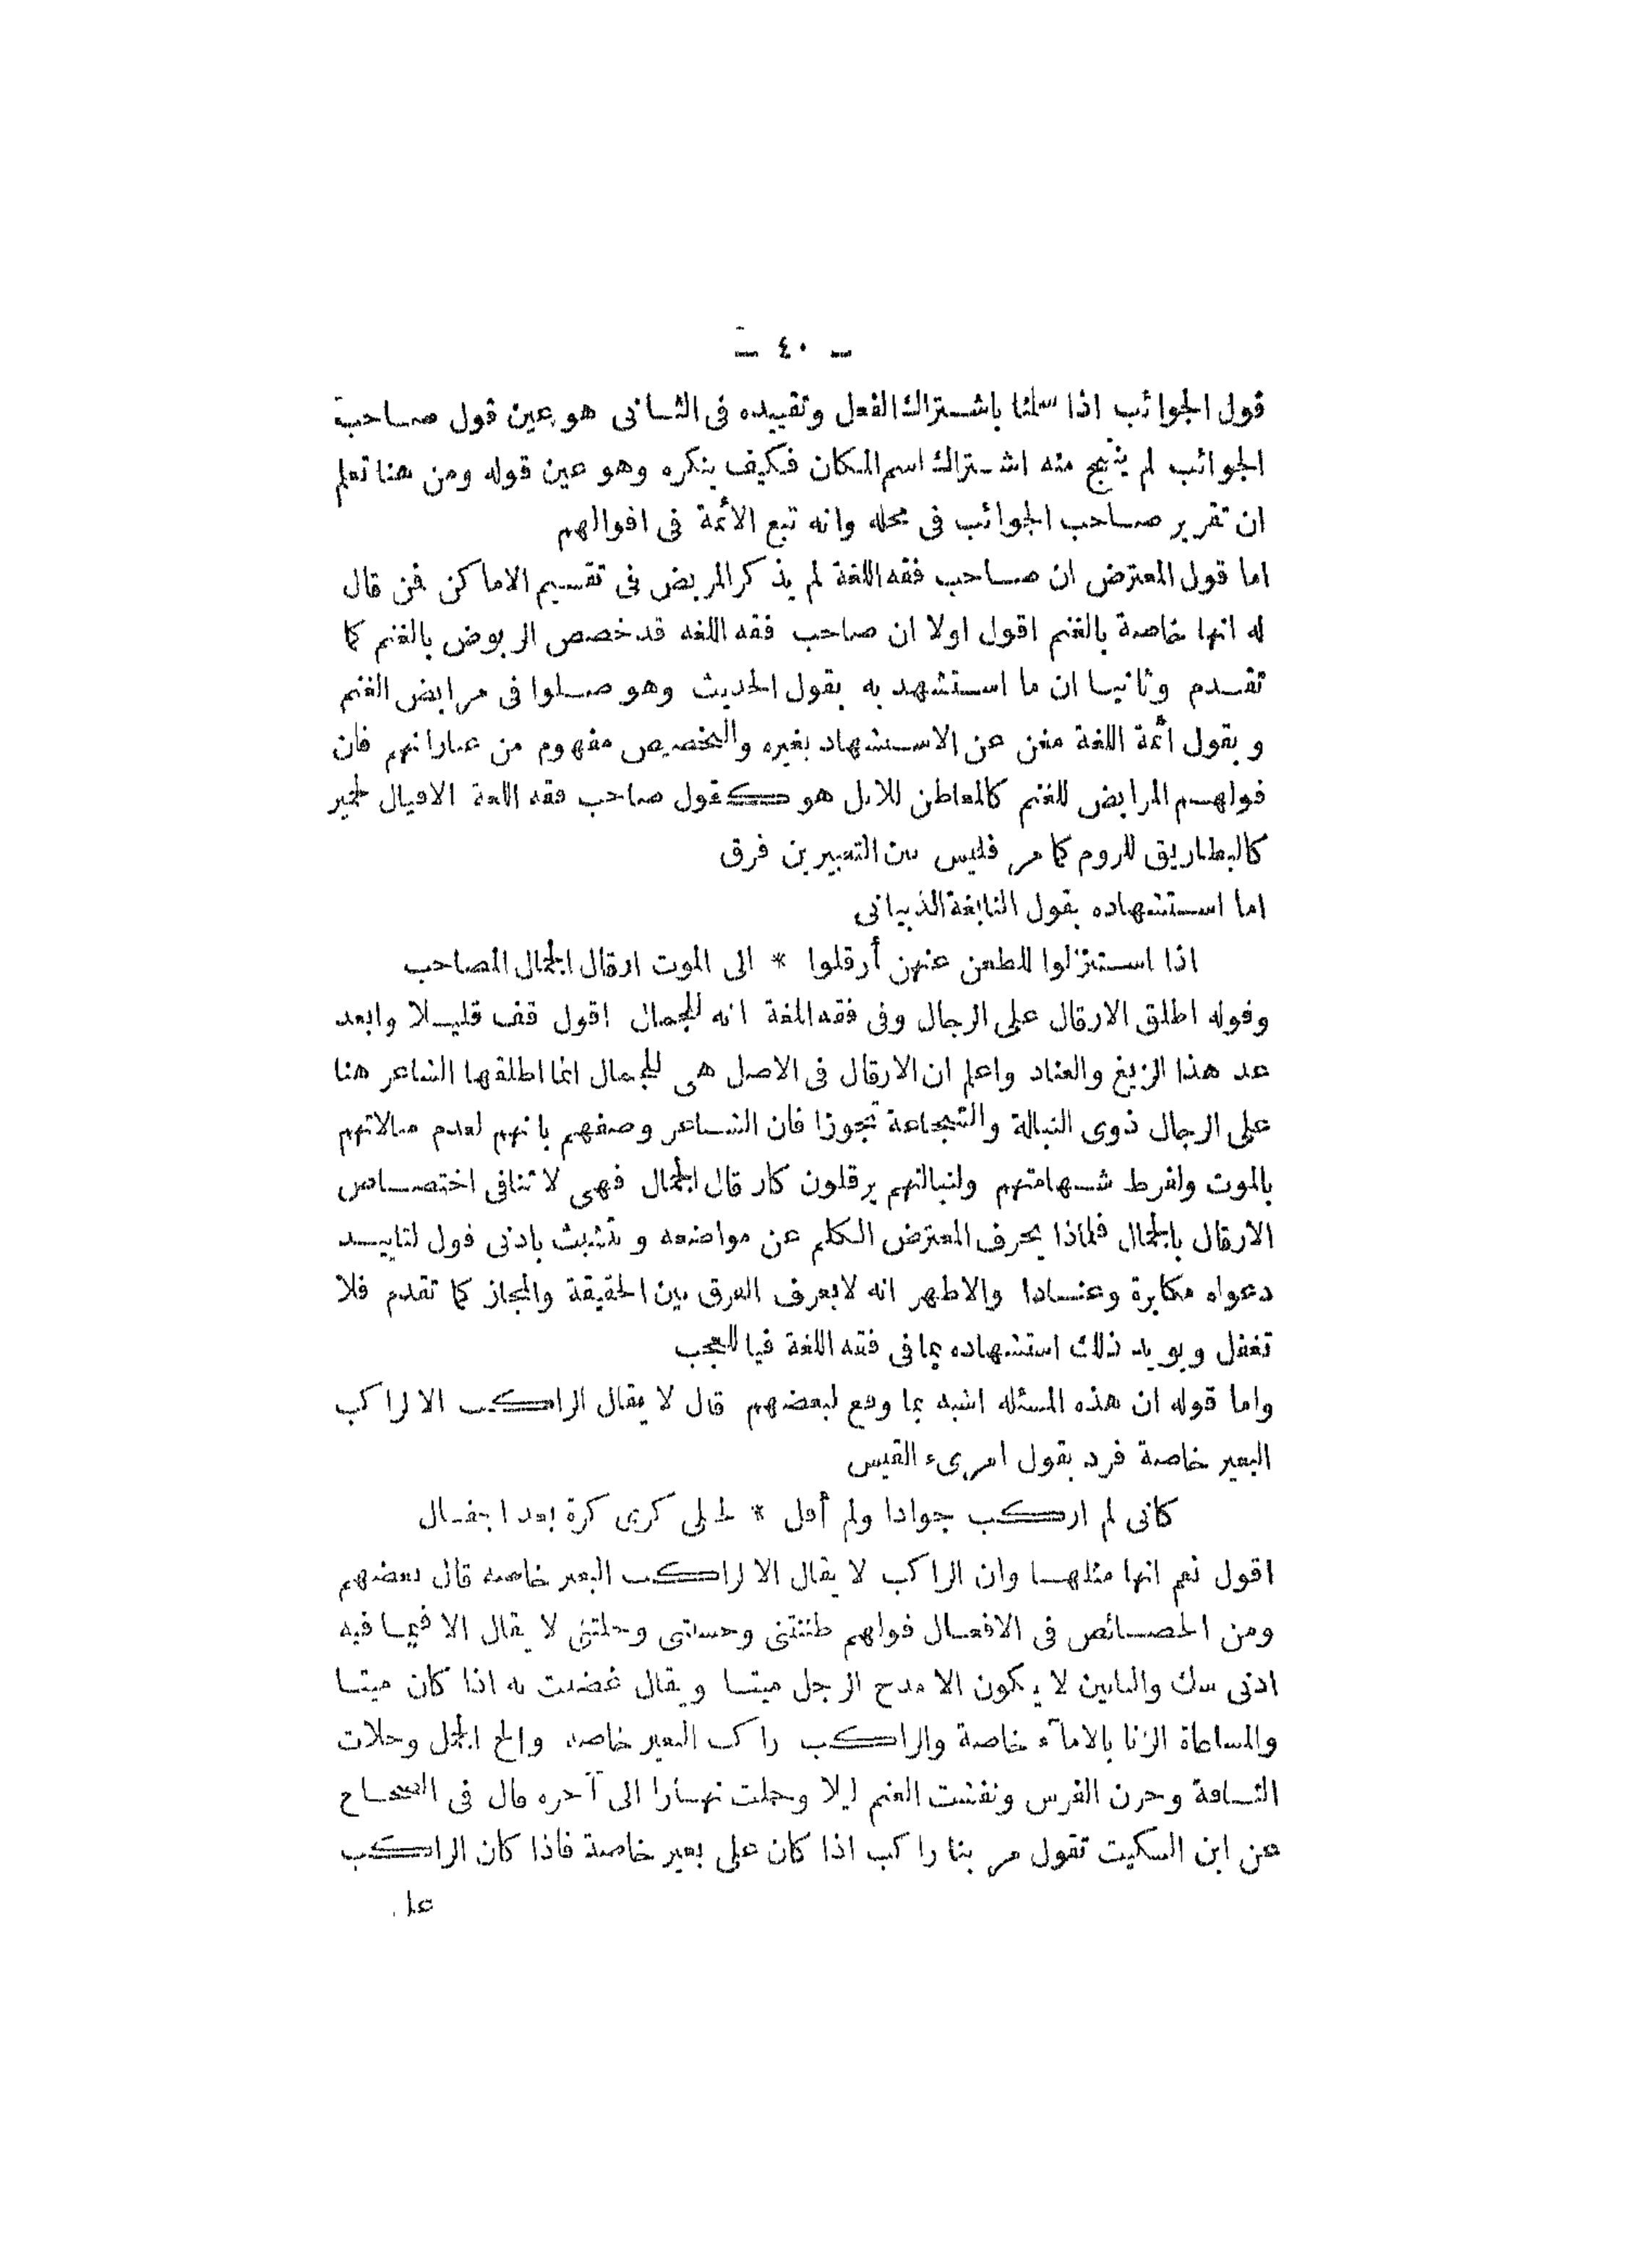 ـ ٤٠ ـ
قول الجوائب اذا سلمنا باشتراك الفعل وتقييده فى الثانى هو عين قول صاحب
الجوائب لم ينتج منه اشتراك اسم المكان فكيف ينكره وهو عين قوله ومن هنا تعلم
ان تقرير صاحب الجوائب فى محله وانه تبع الأئمة فى اقوالهم
اما قول المعترض ان صاحب فقه اللغة لم يذكر المربض فى تقسيم الاماكن فمن قال
له انها خاصة بالغنم اقول اولا ان صاحب فقه اللغه قد خصص الربوض بالغنم كما
تقدم وثانيا ان ما استشهد به بقول الحديث وهو صلوا فى مرابض الغنم
وبقول أئمة اللغة مغن عن الاستشهاد بغيره والتخصيص مفهوم من عباراتهم فان
قولهم المرابض للغنم كالمعاطن للابل هو كقول صاحب فقه اللغة الاقيال لحمير
كالبطاريق للروم كما مر فليس بين التعبيرين فرق
اما استشهاده بقول النابغة الذبيانى
اذا استنزلوا للطعن عنهن أرقلوا * الى الموت ارقال الجمال المصاعب
وقوله اطلق الارقال على الرجال وفى فقه اللغة انه للجمال اقول قف قليلا وابعد
عن هذا الزيغ والعناد واعلم ان الارقال فى الاصل هى للجمال انما اطلقها الشاعر هنا
على الرجال ذوى النبالة والشجاعة تجوزا فان الشاعر وصفهم بانهم لعدم مبالاتهم
بالموت ولفرط شهامتهم ولنبالتهم يرقلون كارقال الجمال فهى لا تنافى اختصاص
الارقال بالجمال فلماذا يحرف المعترض الكلم عن مواضعه ويتشبث بادنى قول لتاييد
دعواه مكابرة وعنادا والاظهر انه لا يعرف الفرق بين الحقيقة والمجاز كما تقدم فلا
تغفل ويويد ذلك استشهاده بما فى فقه اللغة فيا للعجب
واما قوله ان هذه المسئله اشبه بما وقع لبعضهم قال لا يقال الراكب الا لراكب
البعير خاصة فرد بقول امرىء القيس
كانى لم اركب جوادا ولم أقل * لخيلى كرى كرة بعد اجفال
اقول نعم انها مثلها وان الراكب لا يقال الا لراكب البعير خاصه قال بعضهم
ومن الخصائص فى الافعال قولهم ظننتنى وحسبتنى وخلتنى لا يقال الا فيما فيه
ادنى شك والتابين لا يكون الا مدح الرجل ميتا ويقال غضبت به اذا كان ميتا
والمساعاة الزنا بالامآء خاصة والراكب راكب البعير خاصه والح الجمل وخلات
الناقة وحرن الفرس ونفشت الغنم ليلا وهملت نهارا الى آخره قال فى الصحاح
عن ابن السكيت تقول مر بنا راكب اذا كان على بعير خاصة فاذا كان الراكب
على